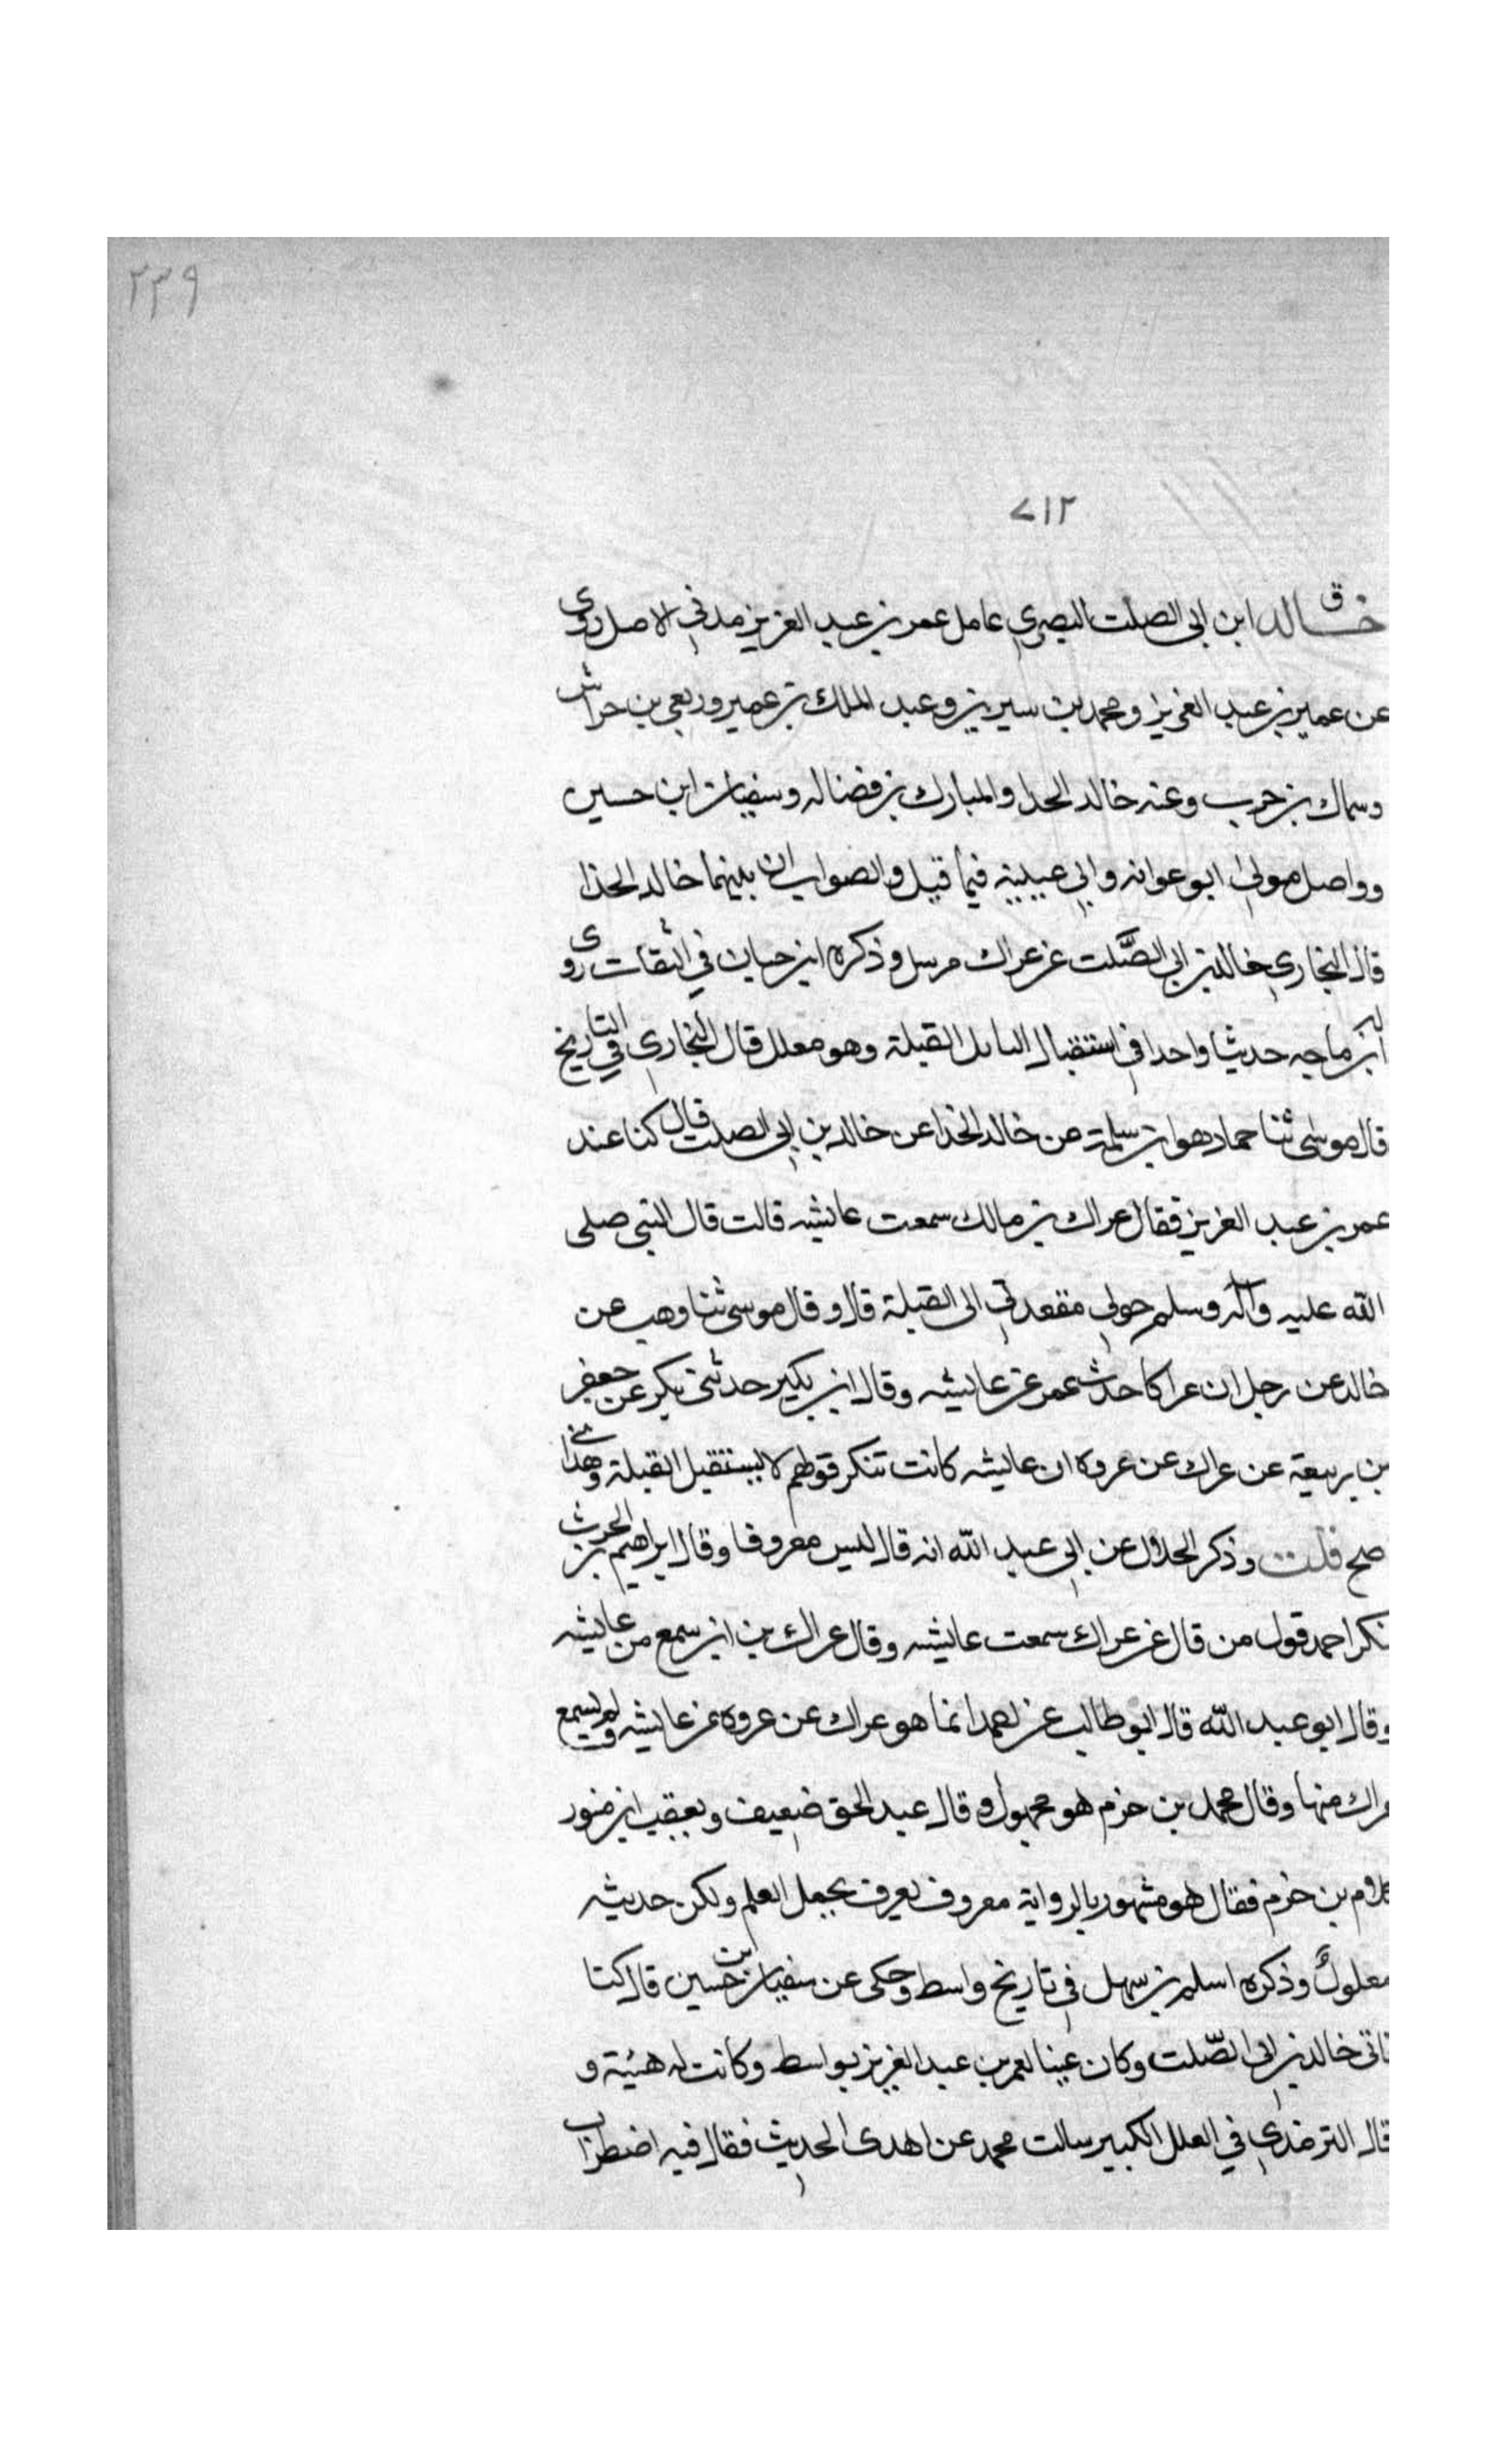 ٢٣٩
٧١٢
ق
خالد ابن ابى الصلت البصري عامل عمر بن عبد العزيز مدني الاصل روى
عن عمير بن عبد العزيز ومحمد بن سيرين وعبد الملك بن عمير وربعي بن حراش
وسماك بن حرب وعنه خالد الحذا والمبارك بن فضاله وسفيان ابن حسين
وواصل مولى ابو عوانه وابي عيينة فيما قيل والصواب ان بينهما خالد الحذا
قال البخاري خالد بن ابى الصَّلت عن عراك مرسل وذكره ابن حبان في الثقات روى
له ابن ماجه حديثا واحدا في استقبال القبلة وهو معلل قال البخاري في التاريخ
قال موسى ثنا حماد هو ابن سلمة عن خالد الحذا عن خالد بن ابى الصلت قال كنا عند
عمر بن عبد العزيز فقال عراك بن مالك سمعت عايشه قالت قال النبي صلى
الله عليه وآله وسلم حولي مقعدتي الى القبلة قال وقال موسى ثنا وهب عن
خالد عن رجل ان عراكا حدث عمر عن عايشه وقال ابن بكير حدثني بكر عن جعفر
بن ربيعة عن عراك عن عروه ان عايشه كانت تنكر قولهم لا يستقبل القبلة وهذا
صح قلت وذكر الخلال عن ابى عبد الله انه قال ليس معروفا وقال ابراهيم بن الحرث
نكر احمد قول من قال عن عراك سمعت عايشه وقال عراك من اين سمع من عايشه
وقال ابو عبد الله قال ابو طالب عن احمد انما هو عراك عن عروه عن عايشه ولم يسمع
عراك منها وقال محمد بن حزم هو مجهول وقال عبد الحق ضعيف وتعقب ابن مفوز
كلام بن حزم فقال هو مشهور بالرواية معروف يعرف بحمل العلم ولكن حديثه
معلولٌ وذكره اسلم بن سهل في تاريخ واسط وحكى عن سفيان بن حسين قال كنا
ناتى خالد بن ابى الصّلت وكان عينا لعمر بن عبد العزيز بواسط وكانت له هيئة و
قال الترمذي في العلل الكبير سالت محمد عن اهدى الحديث فقال فيه اضطراب